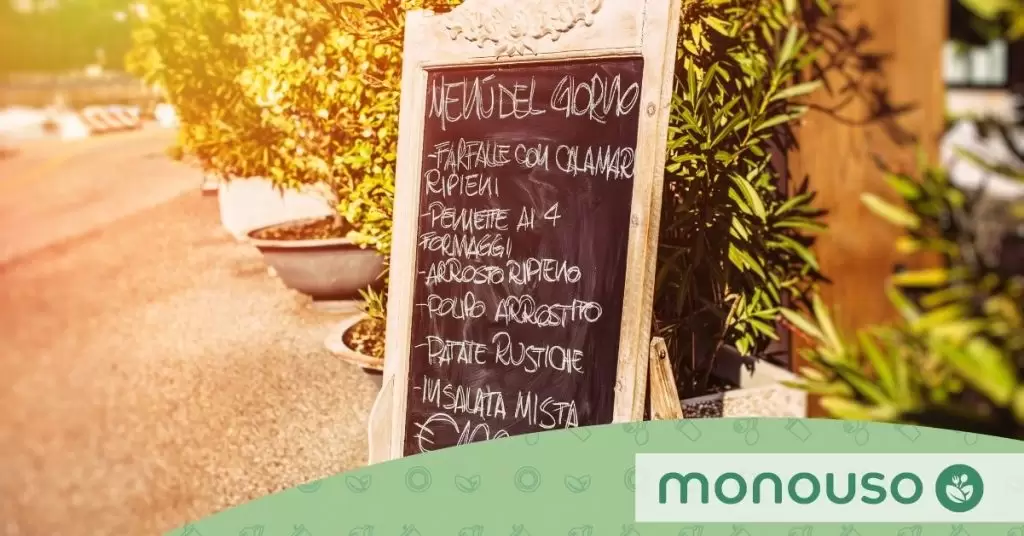 MENÚ DEL GIORNO
-FARFALLE CON CALAMARI
RIPIENI
-PENNETTE AI 4
FORMAGGI
-ARROSTO RIPIENO
-POLIPO ARROSTITO
-PATATE RUSTICHE
-INSALATA MISTA
monouso